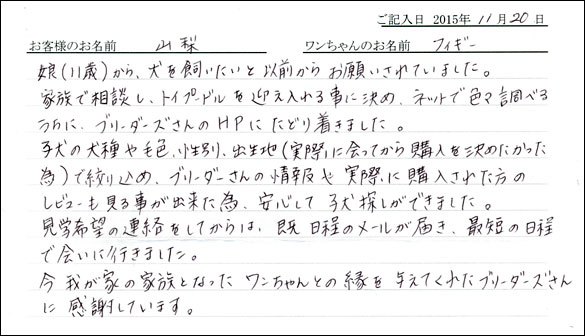 ご記入日 2015年 11月 20日
お客様のお名前 山梨 ワンちゃんのお名前 フィギー
娘(11歳)から、犬を飼いたいと以前からお願いされていました。
家族で相談し、トイプードルを迎え入れる事に決め、ネットで色々調べる
うちに、ブリーダーズさんのHPにたどり着きました。
子犬の犬種や毛色、性別、出生地(実際に会ってから購入を決めたかった
為)で絞り込め、ブリーダーさんの情報や実際に購入された方の
レビューも見る事が出来た為、安心して子犬探しができました。
見学希望の連絡をしてからは、即日程のメールが届き、最短の日程
で会いに行きました。
今我が家の家族となったワンちゃんとの縁を与えてくれたブリーダーズさん
に感謝しています。